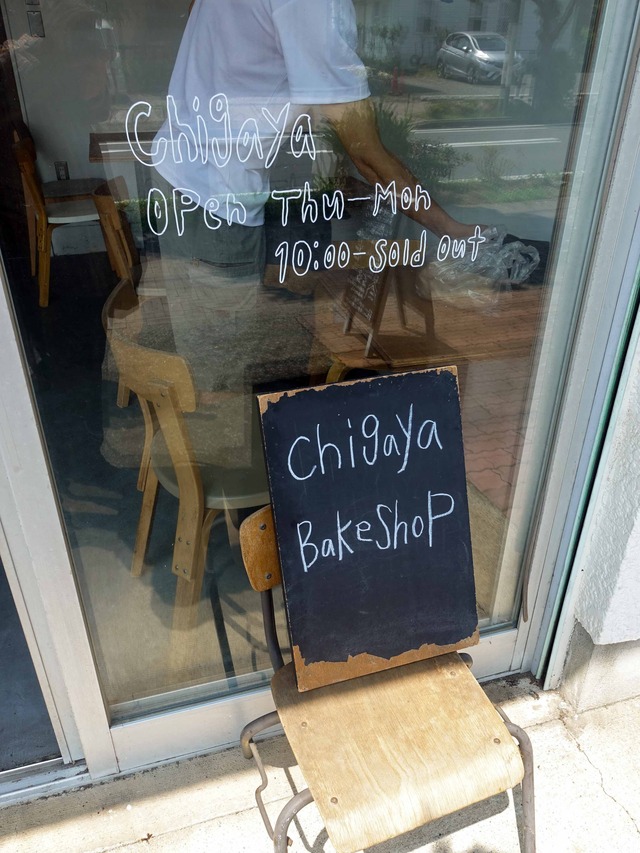 Chigaya
OPen Thu-Mon
10:00-Sold out
Chigaya
BakeShoP